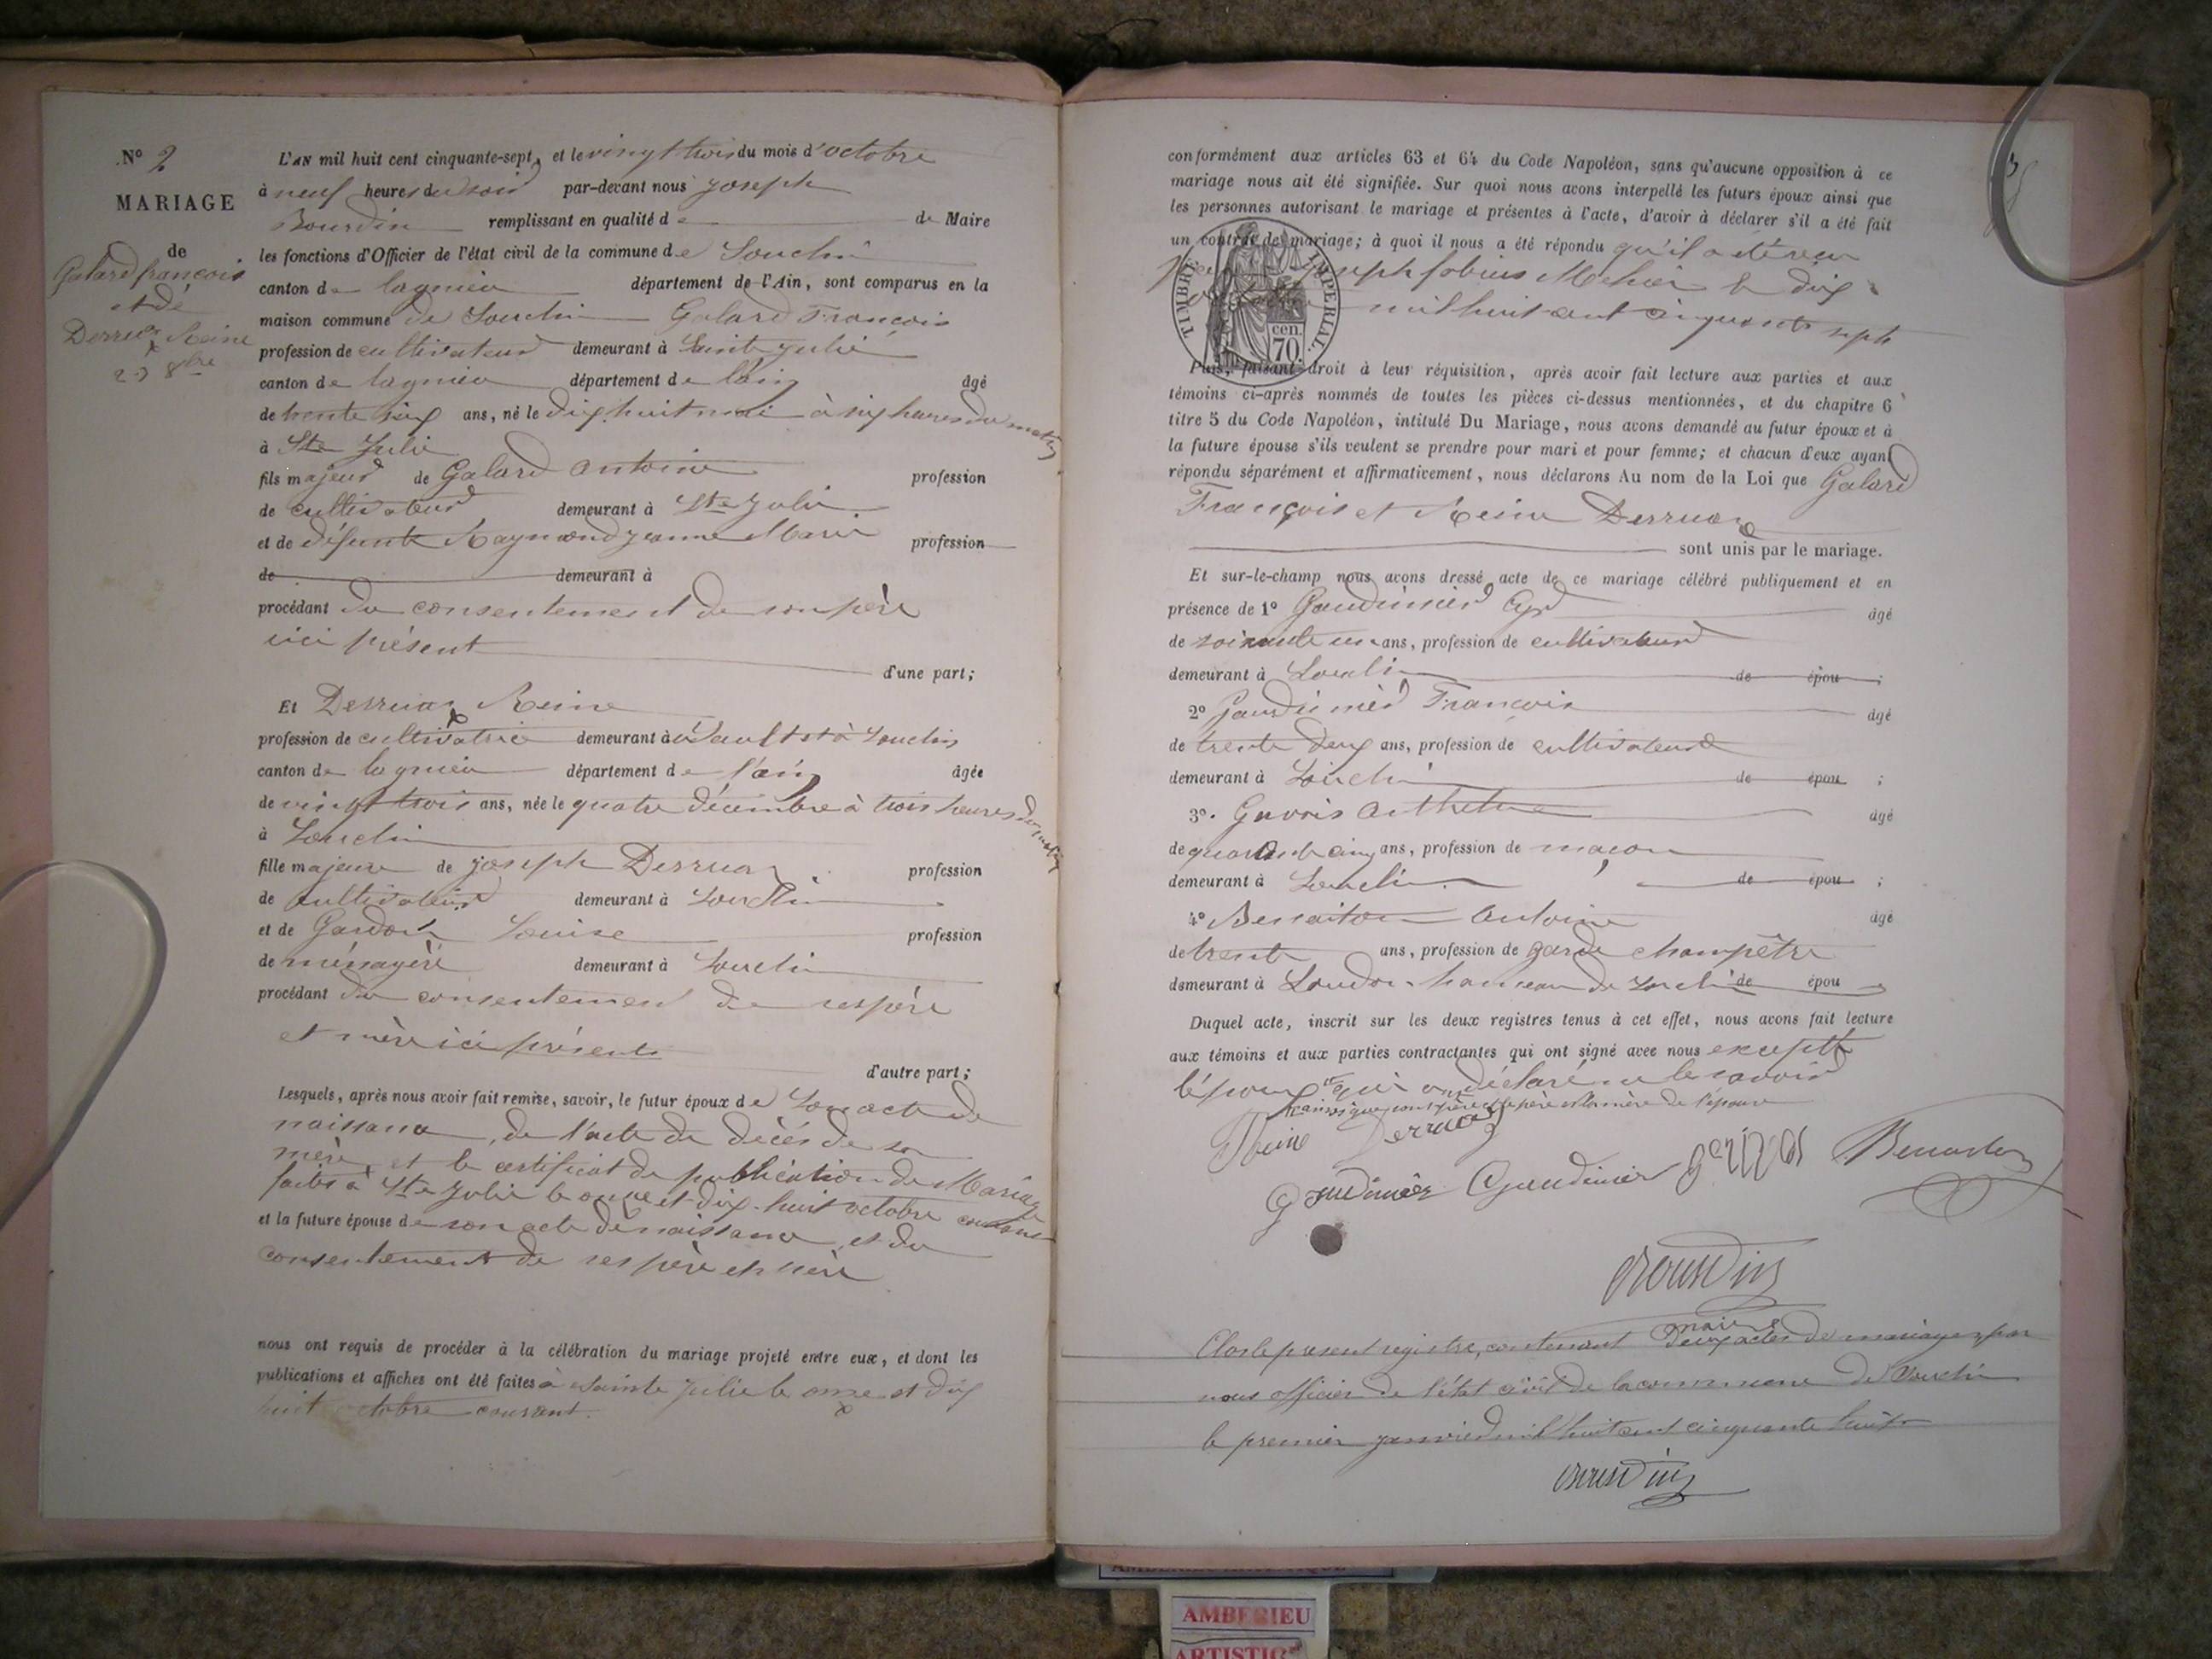 N° 2
MARIAGE
de
Galard françois
et de
Derruaz Reine
23 8bre
L'AN mil huit cent cinquante-sept, et le vingt trois du mois d'octobre
à neuf heures du soir par-devant nous joseph
Bourdin remplissant en qualité de de Maire
les fonctions d'Officier de l'état civil de la commune de Souclin
canton de lagnieu département de l'Ain, sont comparus en la
maison commune de Souclin Galard François
profession de cultivateur demeurant à Sainte julie
canton de lagnieu département de l'ain âgé
de trente six ans, né le dix huit mai à six heures du matin
à Ste Julie
fils majeur de Galard antoine profession
de cultivateur demeurant à Ste Julie
et de défunte Raymond jeanne Marie profession
de demeurant à
procédant du consentement de son père
ici présent
d'une part;
Et Derruaz Reine
profession de cultivatrice demeurant à Souclin
canton de lagnieu département de l'ain âgée
de vingt trois ans, née le quatre décembre à trois heures du matin
à Souclin
fille majeure de joseph Derruaz profession
de cultivateur demeurant à Souclin
et de Louise profession
de ménagère demeurant à Souclin
procédant du consentement de ses père
et mère ici présents
d'autre part;
Lesquels, après nous avoir fait remise, savoir, le futur époux de son acte de
naissance, de l'acte de décès de sa
mère et le certificat de publication de Mariage
faites à Ste Julie le onze et dix-huit octobre courant
et la future épouse de son acte de naissance, et du
consentement de ses père et mère
nous ont requis de procéder à la célébration du mariage projeté entre eux, et dont les
publications et affiches ont été faites à Sainte julie le onze et dix
huit octobre courant.
conformément aux articles 63 et 64 du Code Napoléon, sans qu'aucune opposition à ce
mariage nous ait été signifiée. Sur quoi nous avons interpellé les futurs époux ainsi que
les personnes autorisant le mariage et présentes à l'acte, d'avoir à déclarer s'il a été fait
un contrat de mariage; à quoi il nous a été répondu qu'il a été reçu
joseph le dix
mil huit cent cinquante sept
TIMBRE IMPERIAL
70 cen.
Puis, faisant droit à leur réquisition, après avoir fait lecture aux parties et aux
témoins ci-après nommés de toutes les pièces ci-dessus mentionnées, et du chapitre 6
titre 5 du Code Napoléon, intitulé Du Mariage, nous avons demandé au futur époux et à
la future épouse s'ils veulent se prendre pour mari et pour femme; et chacun d'eux ayant
répondu séparément et affirmativement, nous déclarons Au nom de la Loi que Galard
François et Reine Derruaz
sont unis par le mariage.
Et sur-le-champ nous avons dressé acte de ce mariage célébré publiquement et en
présence de 1° Gaudinier Cyr âgé
de soixante un ans, profession de cultivateur
demeurant à Souclin de épou ;
2° Gaudinier François âgé
de trente deux ans, profession de cultivateur
demeurant à Souclin de épou ;
3°. âgé
de quarante cinq ans, profession de maçon
demeurant à Souclin de épou ;
4° antoine âgé
de trente ans, profession de garde champêtre
demeurant à Soudon hameau de Souclin de épou
Duquel acte, inscrit sur les deux registres tenus à cet effet, nous avons fait lecture
aux témoins et aux parties contractantes qui ont signé avec nous excepté
l'époux qui a déclaré ne le savoir
ainsi que son père et le père et la mère de l'épouse
Reine Derruaz
Gaudinier Gaudinier
Bourdin
maire
Clos le present registre, contenant deux actes de mariages par
nous officier de l'état civil de la commune de Souclin
le premier janvier mil huit cent cinquante huit
Bourdin
AMBERIEU
ARTISTIQUE